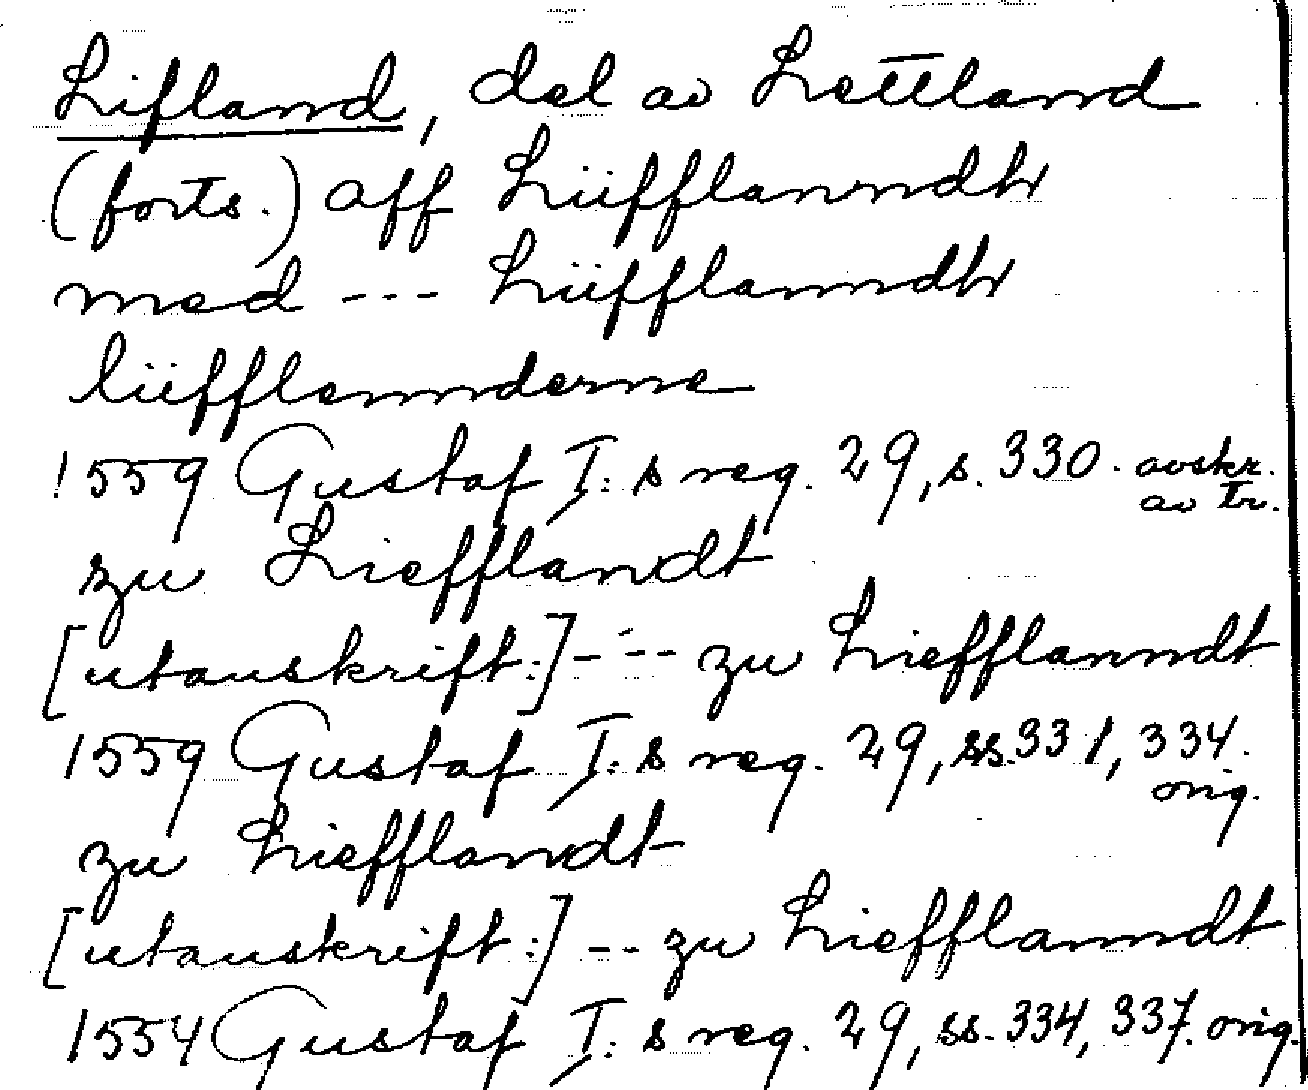 Lifland, del av Lettland
(forts.) aff Lüfflanndh
med --- Lüfflanndh
lüfflennderne
1559 Gustaf I:s reg. 29, s. 330. avskr.
av tr.
zu Liefflandt
[utanskrift:] --- zu Liefflanndt
1559 Gustaf I:s reg. 29, ss. 331, 334.
orig.
zu Liefflandt
[utanskrift:] -- zu Liefflanndt
1554 Gustaf I:s reg. 29, ss. 334, 337. orig.